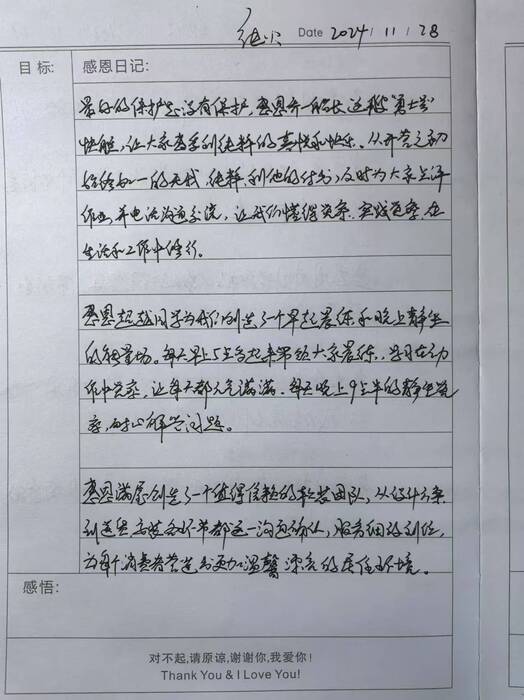 Date 2024/11/28
目标：
感恩日记：
最好的保护是没有保护，感恩齐一船长这艘“勇士号”
快艇，让大家享受到纯粹的喜悦和快乐。从开营之初
始终如一的无我、纯粹、利他的付出，及时为大家点评
作业并电话沟通交流，让我们懂得觉察、实践觉察，在
生活和工作中修行。
感恩起越同学为我们创造了一个早起晨练和晚上静坐
的能量场。每天早上5点多起来带领大家晨练，学习在动
作中觉察，让每天都元气满满。每天晚上9点半的静坐觉
察，耐心解答问题。
感恩满屋创造了一个值得信赖的软装团队，从设计方案
到送货安装各环节都逐一沟通确认，服务细致到位，
为每个消费者营造出更加温馨漂亮的居住环境。
感悟：
对不起，请原谅，谢谢你，我爱你！
Thank You & I Love You!